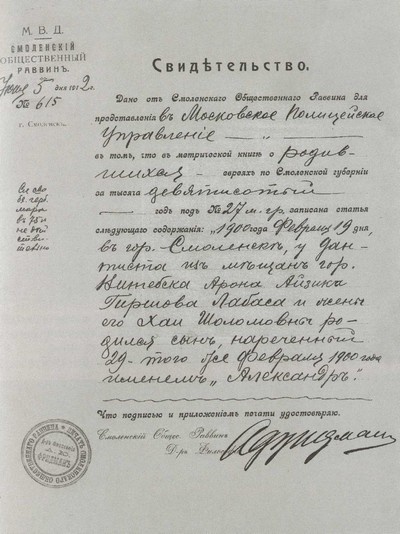 М. В. Д.
СМОЛЕНСКІЙ
ОБЩЕСТВЕННЫЙ
РАВВИНЪ.
5 дня 1912 г.
№ 615
г. Смоленскъ.
Свидѣтельство.
Дано отъ Смоленскаго Общественнаго Раввина для
представленія въ Московское Полицейское
Управленіе
въ томъ, что въ метрической книгѣ о родив-
шихся евреяхъ по Смоленской губерніи
за тысяча девятисотый
годъ подъ № 27 м. гр. записана статья
слѣдующаго содержанія: „1900 года Февраля 19 дня,
въ гор. Смоленскѣ, у дан-
тиста изъ мѣщанъ гор.
Витебска Арона Айзика
Гиршова Лабаса и жены
его Хаи Шоломовны ро-
дился сынъ, нареченный
29-того же Февраля 1900 года
именемъ „Александръ".
Что подписью и приложеніемъ печати удостовѣряю.
Смоленскій Общес. Раввинъ
Д-ръ Филос.
ПЕЧАТЬ СМОЛЕНСКАГО ОБЩЕСТВЕННАГО РАВВИНА
ФРИДМАНЪ